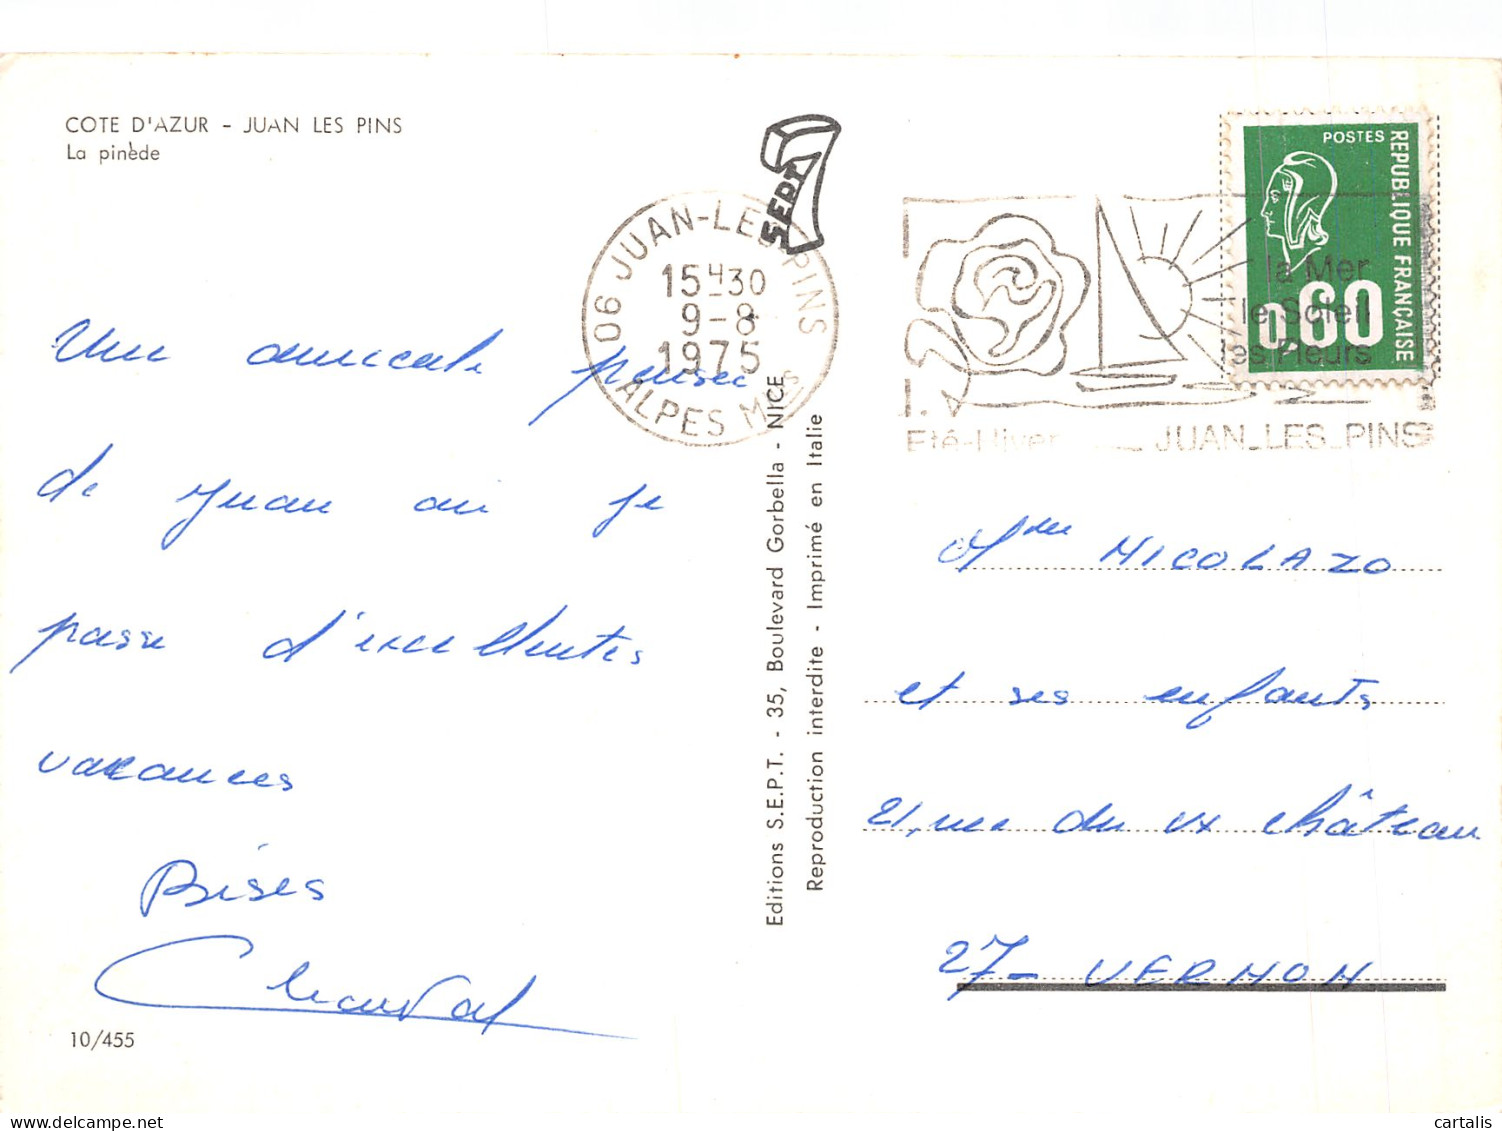 COTE D'AZUR - JUAN LES PINS
La pinède
SEPT
06 JUAN-LES-PINS
15H30
9-8
1975
ALPES MMES
POSTES
REPUBLIQUE FRANÇAISE
0,60
la Mer
le Soleil
les Fleurs
Eté-Hiver JUAN_LES_PINS
Une amicale pensée
de Juan où je
passe d'excellentes
vacances
Bises
10/455
Editions S.E.P.T. - 35, Boulevard Gorbella - NICE
Reproduction interdite - Imprimé en Italie
Mme NICOLAZO
et ses enfants
21, rue du Vx château
27- VERNON
cartalis